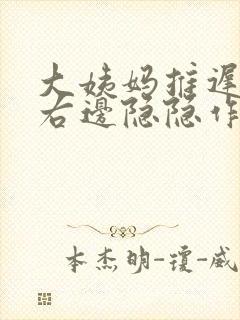 大姨妈推迟
右边隐隐作
本杰明-琼-威